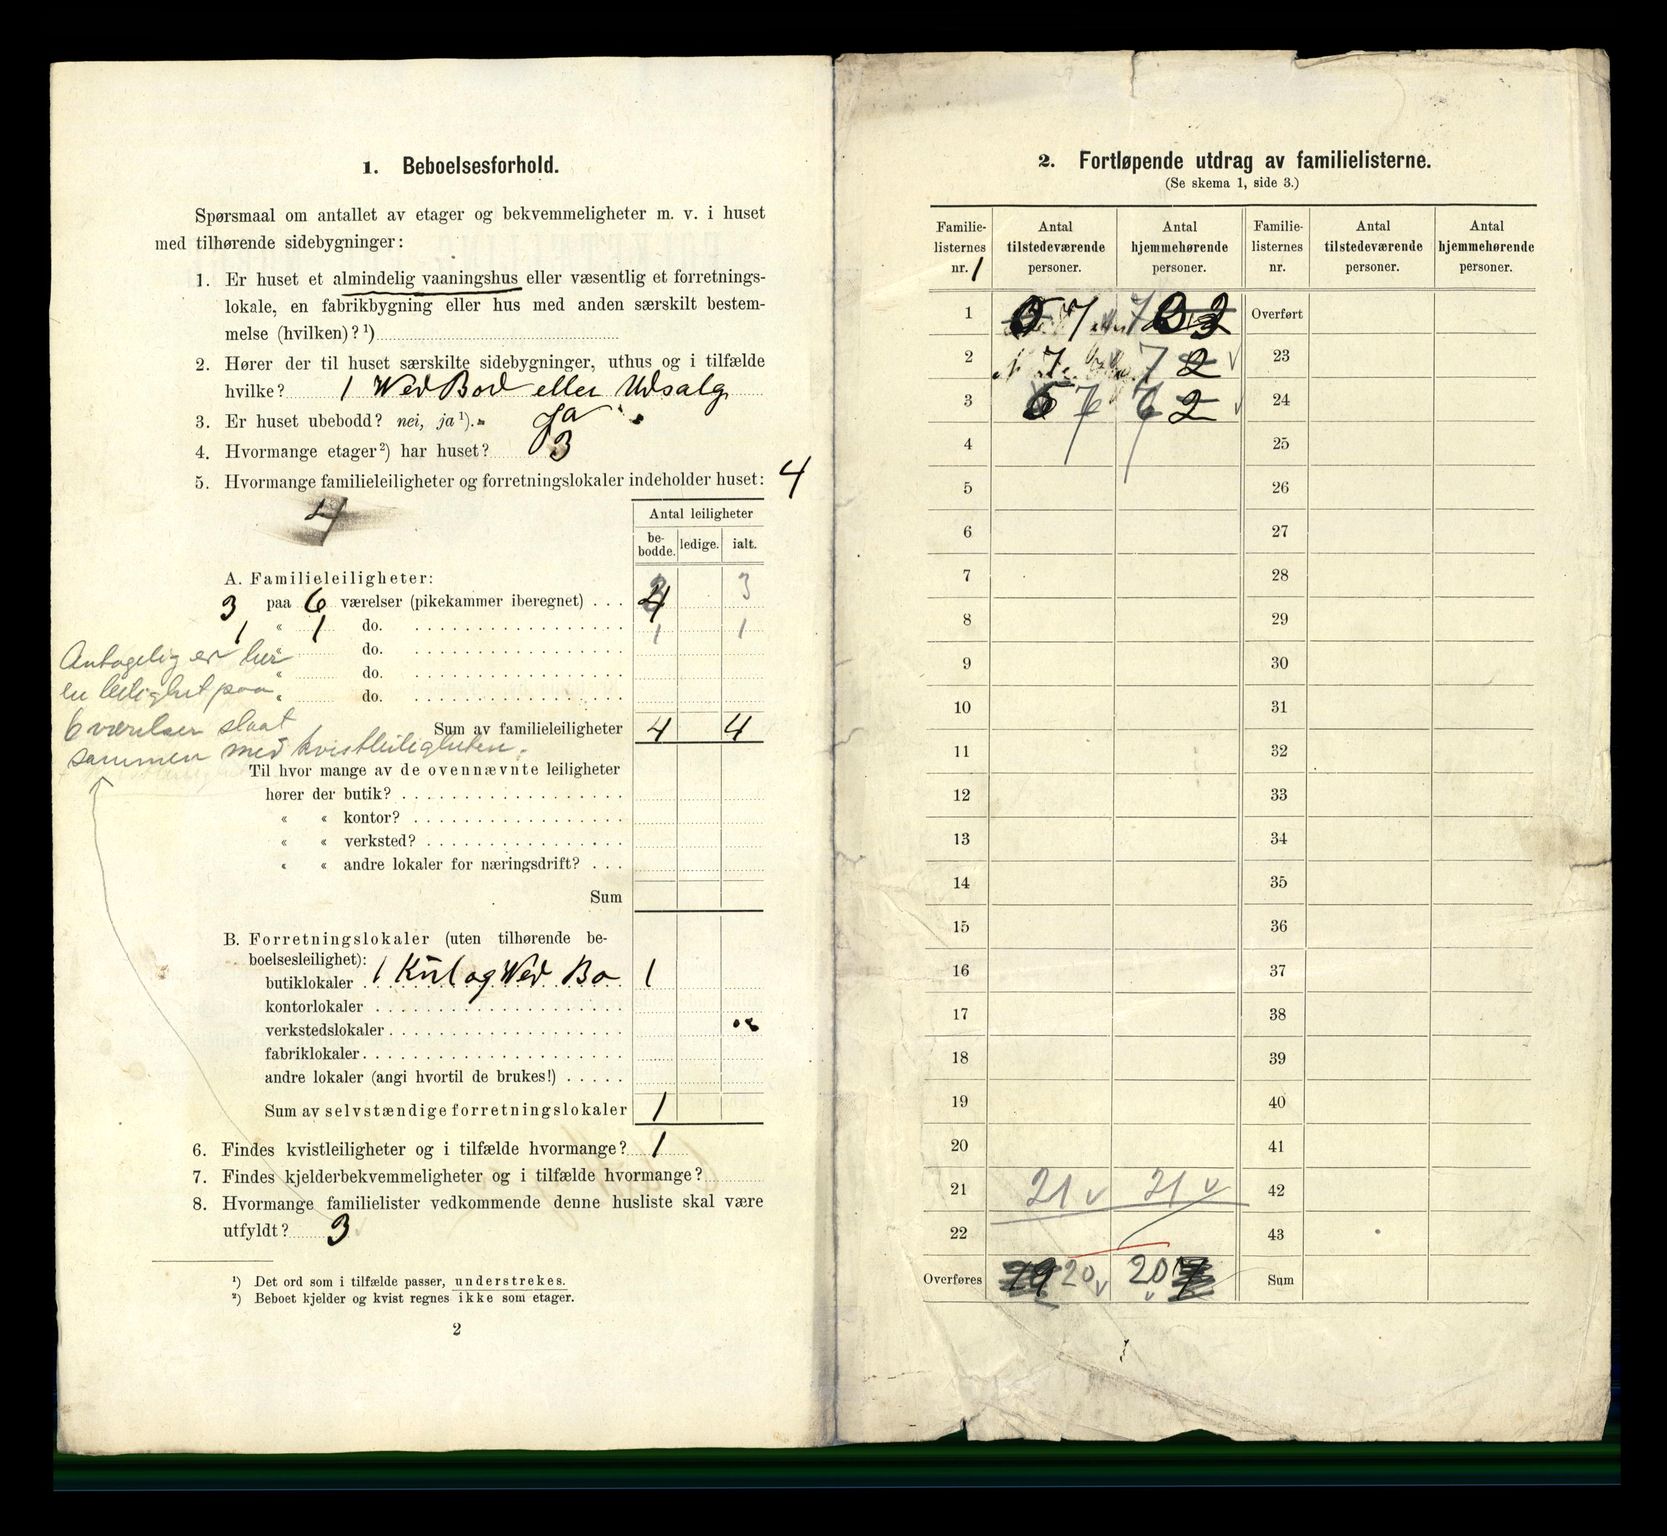 1. Beboelsesforhold.
Spørsmaal om antallet av etager og bekvemmeligheter m. v. i huset
med tilhørende sidebygninger:
1. Er huset et almindelig vaaningshus eller væsentlig et forretnings-
lokale, en fabrikbygning eller hus med anden særskilt bestem-
melse (hvilken)? ¹)
2. Hører der til huset særskilte sidebygninger, uthus og i tilfælde
hvilke? 1 Ved Bod eller Udsalg
3. Er huset ubebodd? nei, ja ¹). Ja
4. Hvormange etager ²) har huset? 3
5. Hvormange familieleiligheter og forretningslokaler indeholder huset: 4
4
Antal leiligheter
be-
bodde. ledige. ialt.
A. Familieleiligheter:
3 paa 6 værelser (pikekammer iberegnet) . . . 4 3
1 « 1 do. 1 1
« do.
« do.
« do.
Antagelig er her
en leilighet paa
6 værelser slaat
sammen med kvistleiligheten.
Sum av familieleiligheter 4 4
Til hvor mange av de ovennævnte leiligheter
hører der butik?
« « kontor?
« « verksted?
« « andre lokaler for næringsdrift? . . .
Sum
B. Forretningslokaler (uten tilhørende be-
boelsesleilighet):
butiklokaler 1 Kul og Ved Bo 1
kontorlokaler
verkstedslokaler
fabriklokaler
andre lokaler (angi hvortil de brukes!)
Sum av selvstændige forretningslokaler 1
6. Findes kvistleiligheter og i tilfælde hvormange? 1
7. Findes kjelderbekvemmeligheter og i tilfælde hvormange?
8. Hvormange familielister vedkommende denne husliste skal være
utfyldt? 3
¹) Det ord som i tilfælde passer, understrekes.
²) Beboet kjelder og kvist regnes ikke som etager.
2
2. Fortløpende utdrag av familielisterne.
(Se skema 1, side 3.)
Familie-
listernes
nr. 1
Antal
tilstedeværende
personer.
Antal
hjemmehørende
personer.
Familie-
listernes
nr.
Antal
tilstedeværende
personer.
Antal
hjemmehørende
personer.
1 7 7 Overført
2 7 7 2 23
3 6 7 6 2 24
4 7 7 25
5 26
6 27
7 28
8 29
9 30
10 31
11 32
12 33
13 34
14 35
15 36
16 37
17 38
18 39
19 40
20 41
21 21 v 21 v 42
22 43
Overføres 19 20 v 20 v Sum